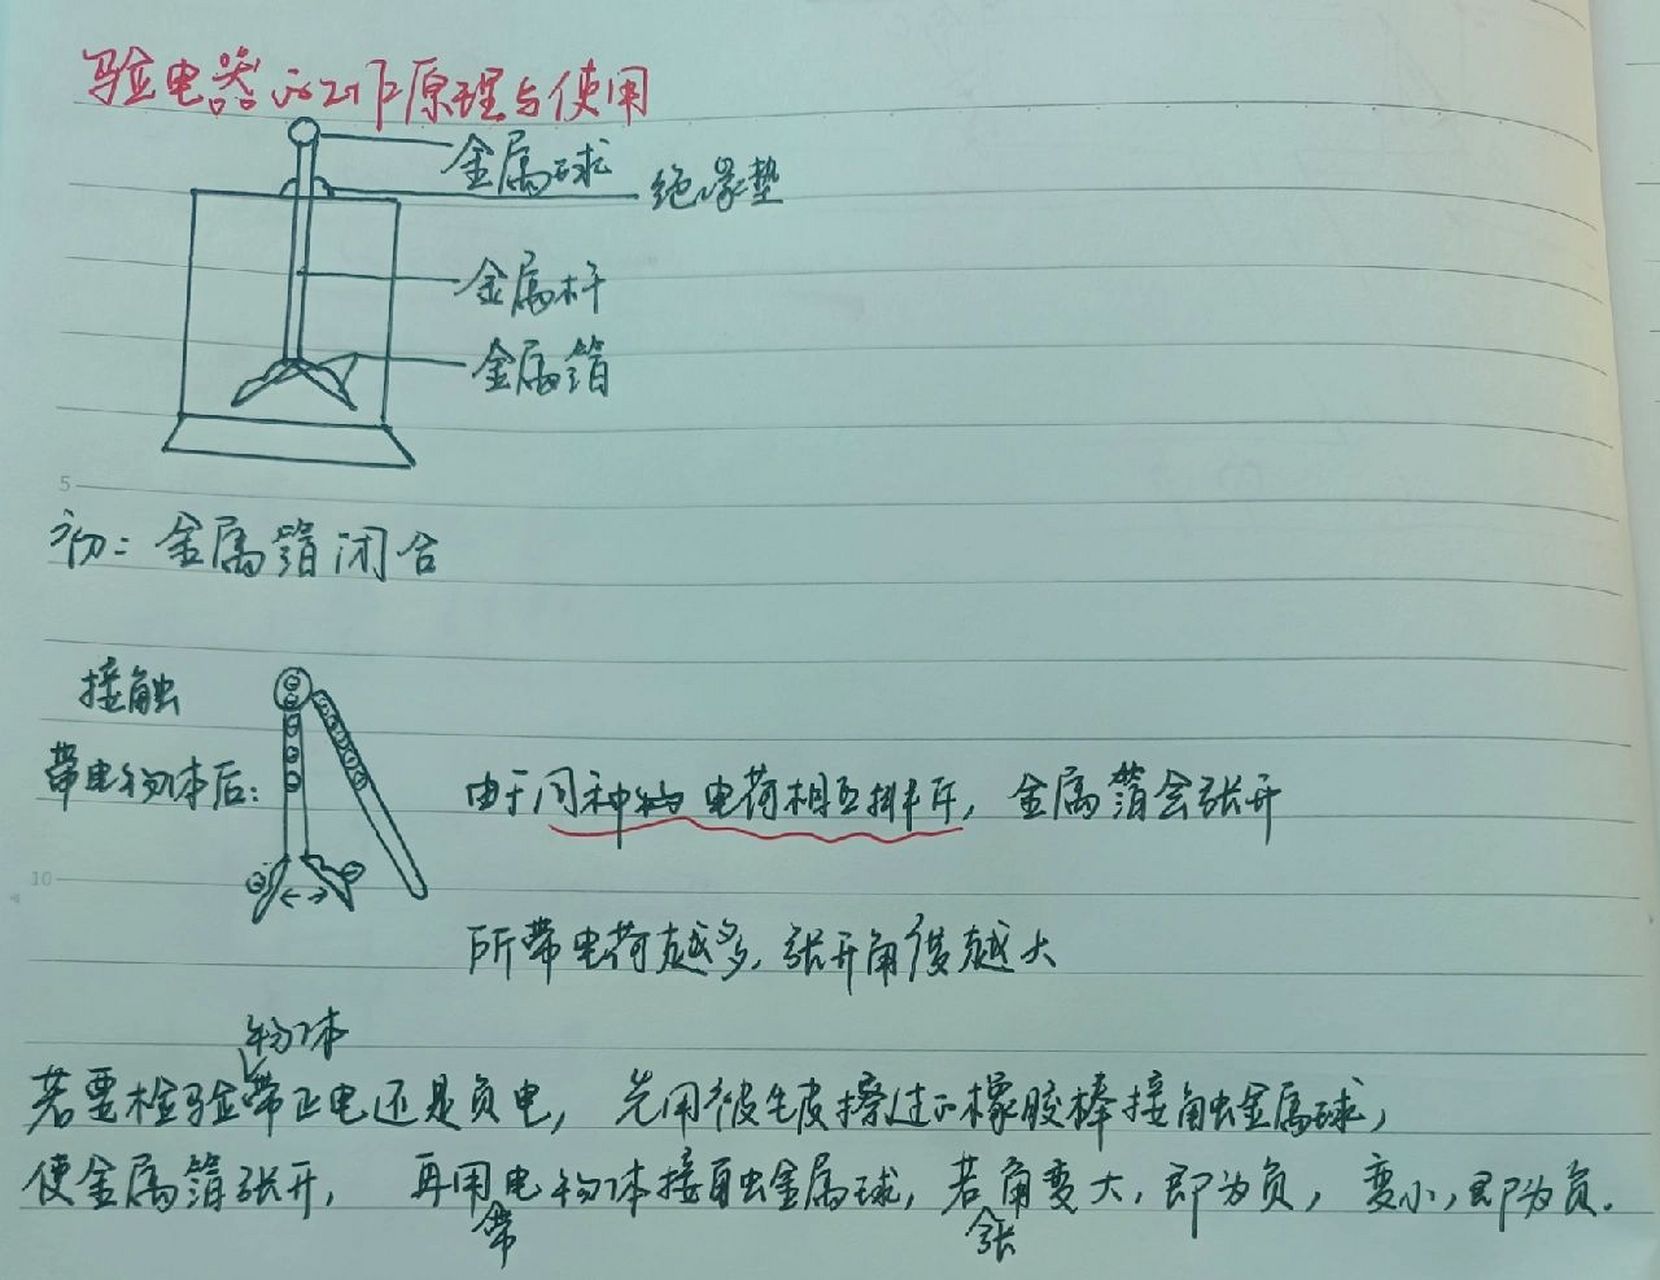 验电器的工作原理与使用
金属球
绝缘垫
金属杆
金属箔
5
初：金属箔闭合
接触
带电物体后：
由于同种电荷相互排斥，金属箔会张开
10
所带电荷越多，张开角度越大
物体
若要检验带正电还是负电，先用被毛皮擦过的橡胶棒接触金属球，
使金属箔张开，再用电物体接触金属球，若角变大，即为负，变小，即为负．
带
张